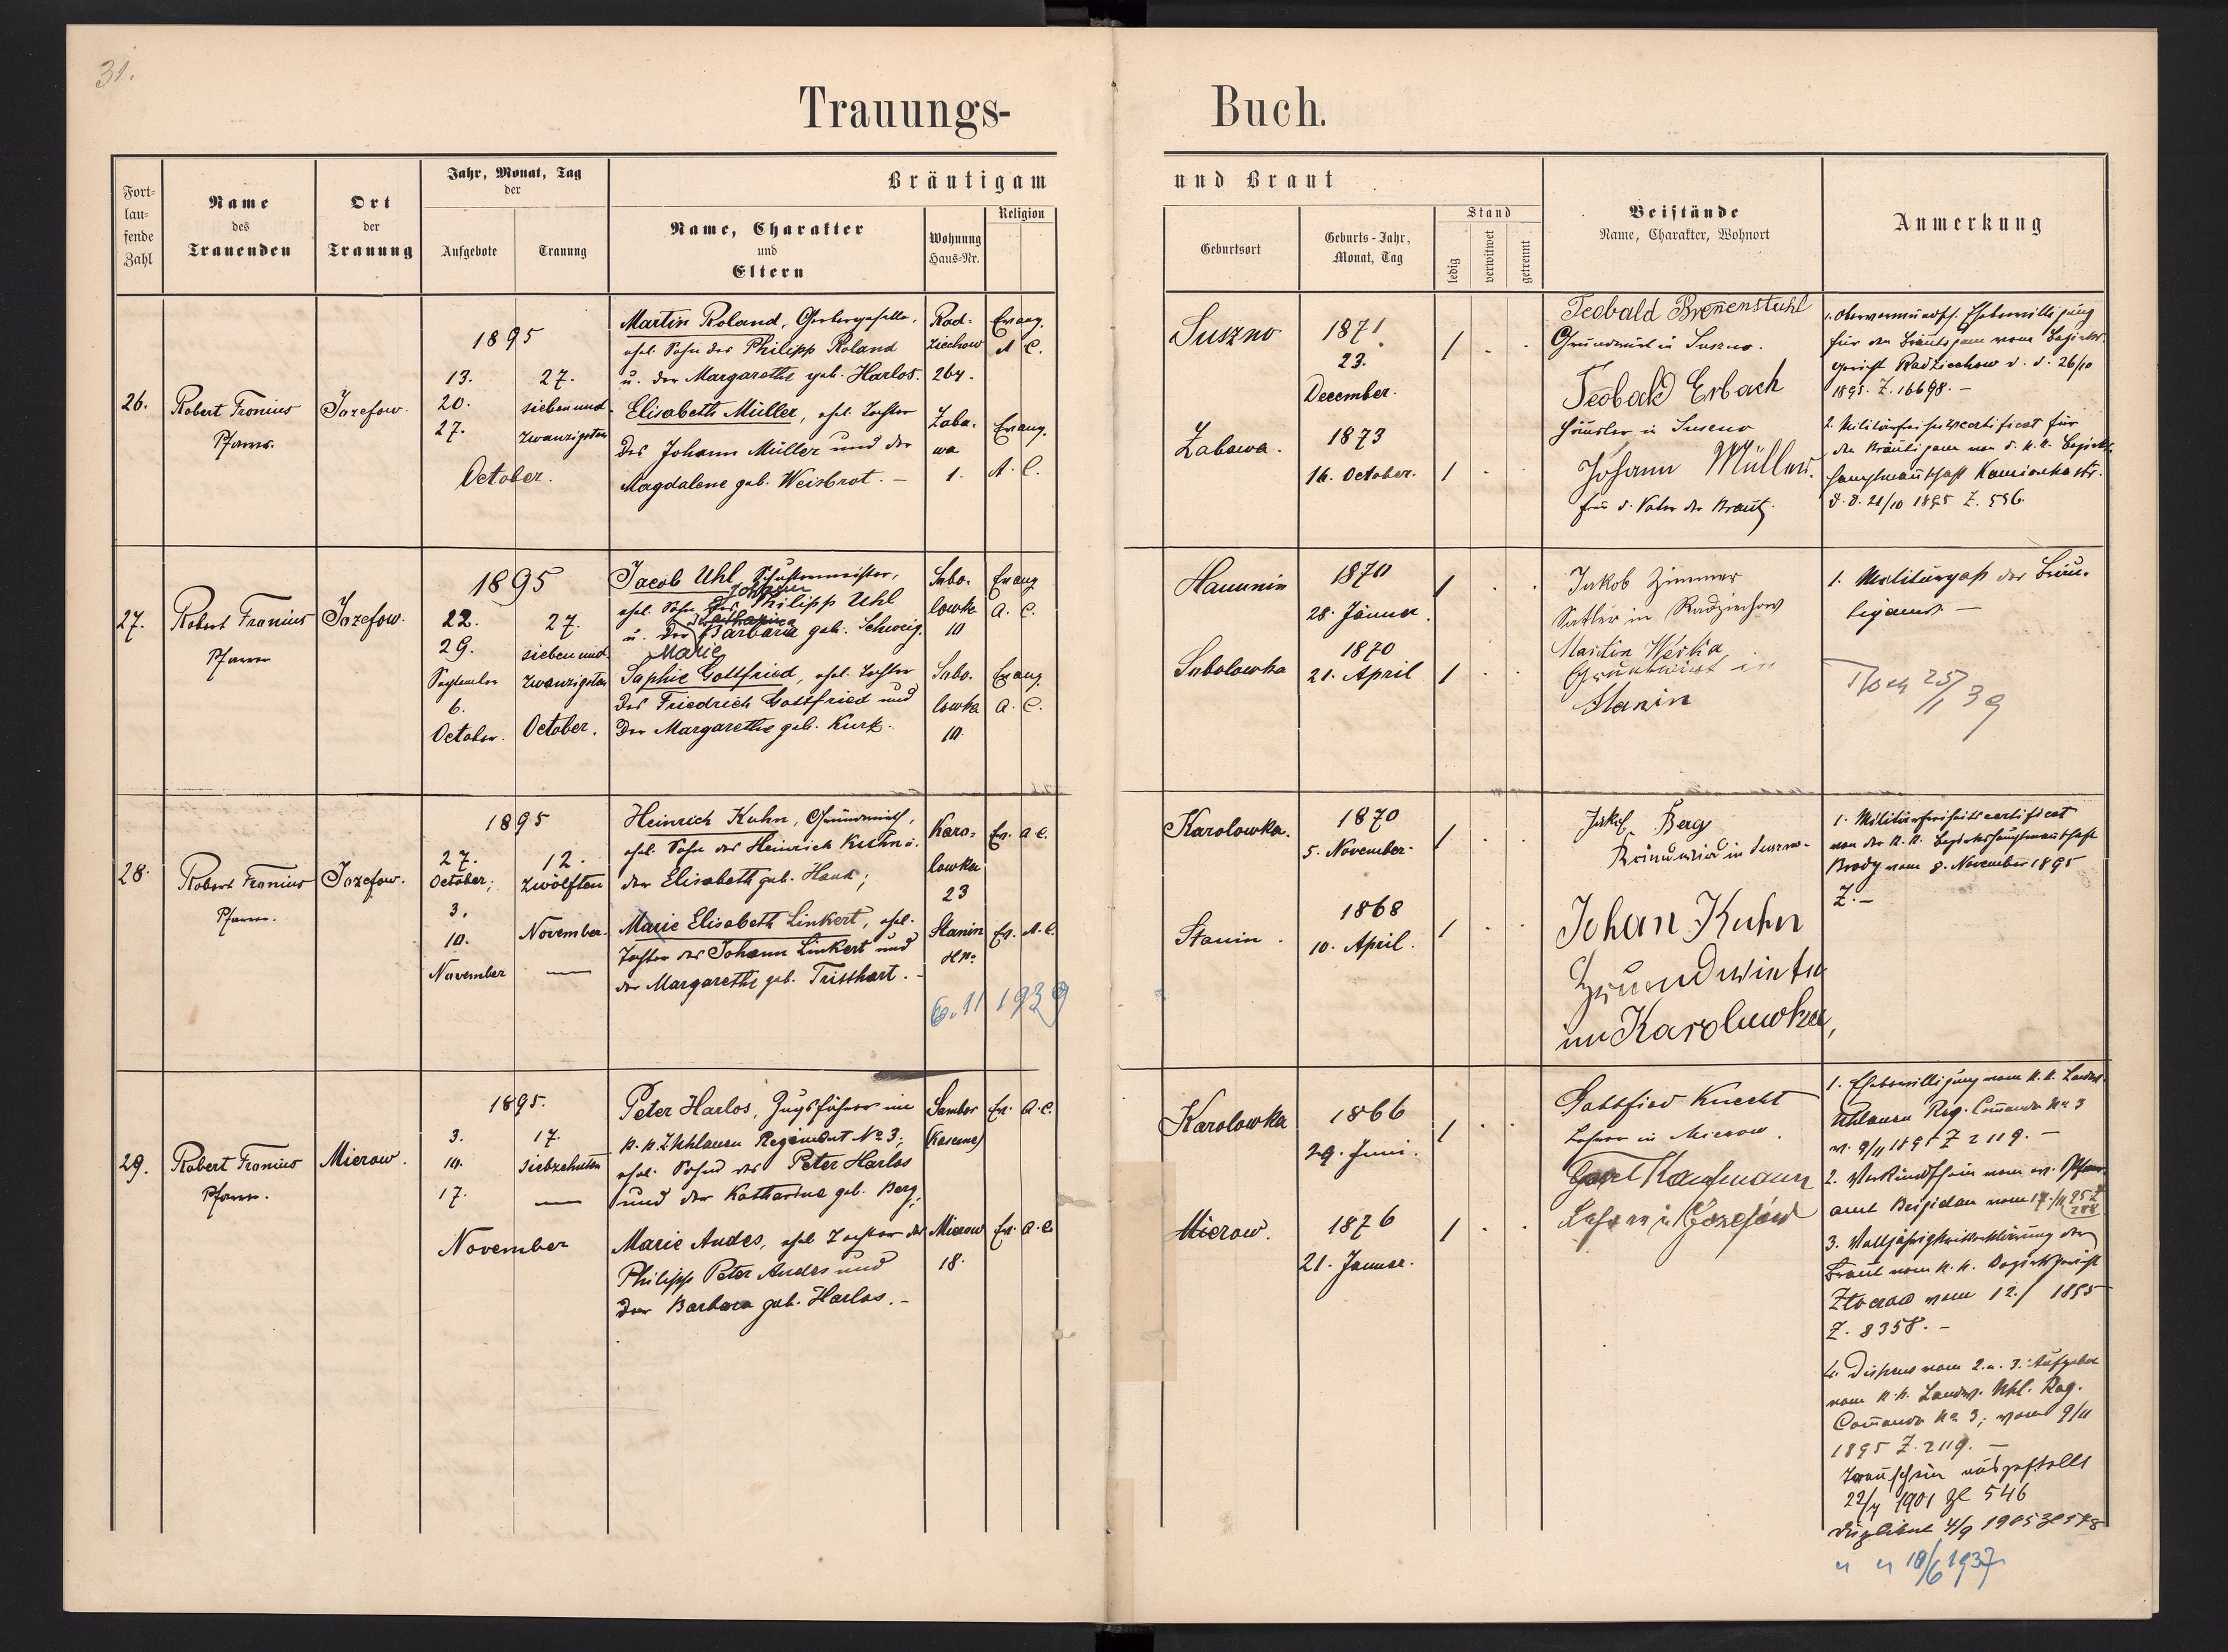 31.
Trauungs- Buch.
Fort-
lau-
fende
Zahl
Name
des
Trauenden
Ort
der
Trauung
Jahr, Monat, Tag
der
Aufgebote
Trauung
Bräutigam
und Braut
Name, Charakter
und
Eltern
Wohnung
Haus-Nr.
Religion
Geburtsort
Geburts-Jahr,
Monat, Tag
Stand
ledig
verwitwet
getrennt
Beistände
Name, Charakter, Wohnort
Anmerkung
26.
Robert Fronius
Pfarrer.
Jozefow.
1895
13.
20.
27.
27.
sieben und
zwanzigsten
October.
Martin Roland, Gerbergeselle,
ehel. Sohn des Philipp Roland
u. der Margarethe geb. Harlos.
Elisabeth Müller, ehel. Tochter
des Johann Müller und der
Magdalene geb. Weisbrot. –
Rad-
ziechow
264.
Evang.
A C.
Zaba-
wa
1.
Evang.
A. C.
Suszno
1871
23.
December.
1 . .
Zabawa.
1873
16. October.
1 . .
Teobald Brenenstuhl
Grundwirt in Suszno.
Teobald Erbach
Häusler in Suszno
Johann Müller.
für d. Vater der Braut.
1. Obervormundsch. Ehebewilligung
für den Bräutigam vom Bezirks-
gericht Radziechow d. d. 26/10
1895. Z. 16698. –
2. Militärfreiheitscertificat für
den Bräutigam von d. k. k. Bezirks-
hauptmannschaft Kamionka str.
d. d. 21/10 1895 Z. 556.
27.
Robert Fronius
Pfarrer
Jozefow.
1895
22.
29.
September
6.
October.
27.
sieben und
zwanzigsten
October.
Jacob Uhl, Schustermeister,
Johann
ehel. Sohn des Philipp Uhl
Katharina
u. der Barbara geb. Schweig.
Marie
Sophie Gottfried, ehel. Tochter
des Friedrich Gottfried und
der Margarethe geb. Kurtz.
Sabo-
lowka
10
Evang
A. C.
Sabo-
lowka
10.
Evang
A. C.
Hanunin
1870
28. Jänner.
1 . .
Sabolowka
1870
21. April
1 . .
Jakob Zimmer
Satler in Radziechow
Martin
Grundwirt in
Stanin
1. Militärpaß des Bräu-
tigams. –
25/1 39
28.
Robert Fronius
Pfarrer.
Jozefow.
1895
27.
October;
3.
10.
November
12.
zwölften
November.
—
Heinrich Kuhn, Grundwirth,
ehel. Sohn des Heinrich Kuhn u.
der Elisabeth geb. Hauk;
Marie Elisabeth Linkert, ehel.
Tochter des Johann Linkert und
der Margarethe geb. Tristhart. –
Karo-
lowka
23
Ev. A C.
Stanin
Ev. A. C.
6. 11 1939
Karolowka.
1870
5. November.
1 . .
Stanin.
1868
10. April.
1 . .
Jakob Berg
Grundwirth in Suszno.
Johan Kuhn
Grundwirth
in Karolowka,
1. Militärfreiheitscertificat
von der k. k. Bezirkshauptmannschaft
Brody vom 8. November 1895
Z. –
29.
Robert Fronius
Pfarrer.
Mierow.
1895.
3.
10.
17.
17.
siebzehnten
—
November
Peter Harlos, Zugsführer im
k. k. L. Uhlanen Regiment No 3;
ehel. Sohn des Peter Harlos
und der Katharina geb. Berg;
Marie Andes, ehel. Tochter des
Philipp Peter Andes und
der Barbara geb. Harlos. –
Sambor
(Kaserne)
Ev. A. C.
Mierow
18.
Ev. A. C
Karolowka
1866
29. Juni.
1 . .
Mierow.
1876
21. Januar.
1 . .
Gottfried Knecht
Lehrer in Mierow.
Karl Kaufmann
Lehrer in Jozefow
1. Ehebewilligung vom k. k. Landw.
Uhlanen Reg. Commando No 3
v. 9/11 1895 Z 2119. –
2. Verkündschein vom ev. Pfarr-
amt Brigidau vom 17./11 95 Z
288
3. Volljährigkeitserklärung der
Braut vom k. k. Bezirksgericht
Złoczow vom 12./ 1895
Z. 8358. –
4. Dispens vom 2. u. 3. Aufgebot
vom k. k. Landw. Uhl. Reg.
Commando No 3; vom 9/11
1895 Z. 2119. –
Trauschein ausgestellt
22/7 1901 Zl 546
Duplikat 4/9 1905 Zl 578
" " 18/6 1937